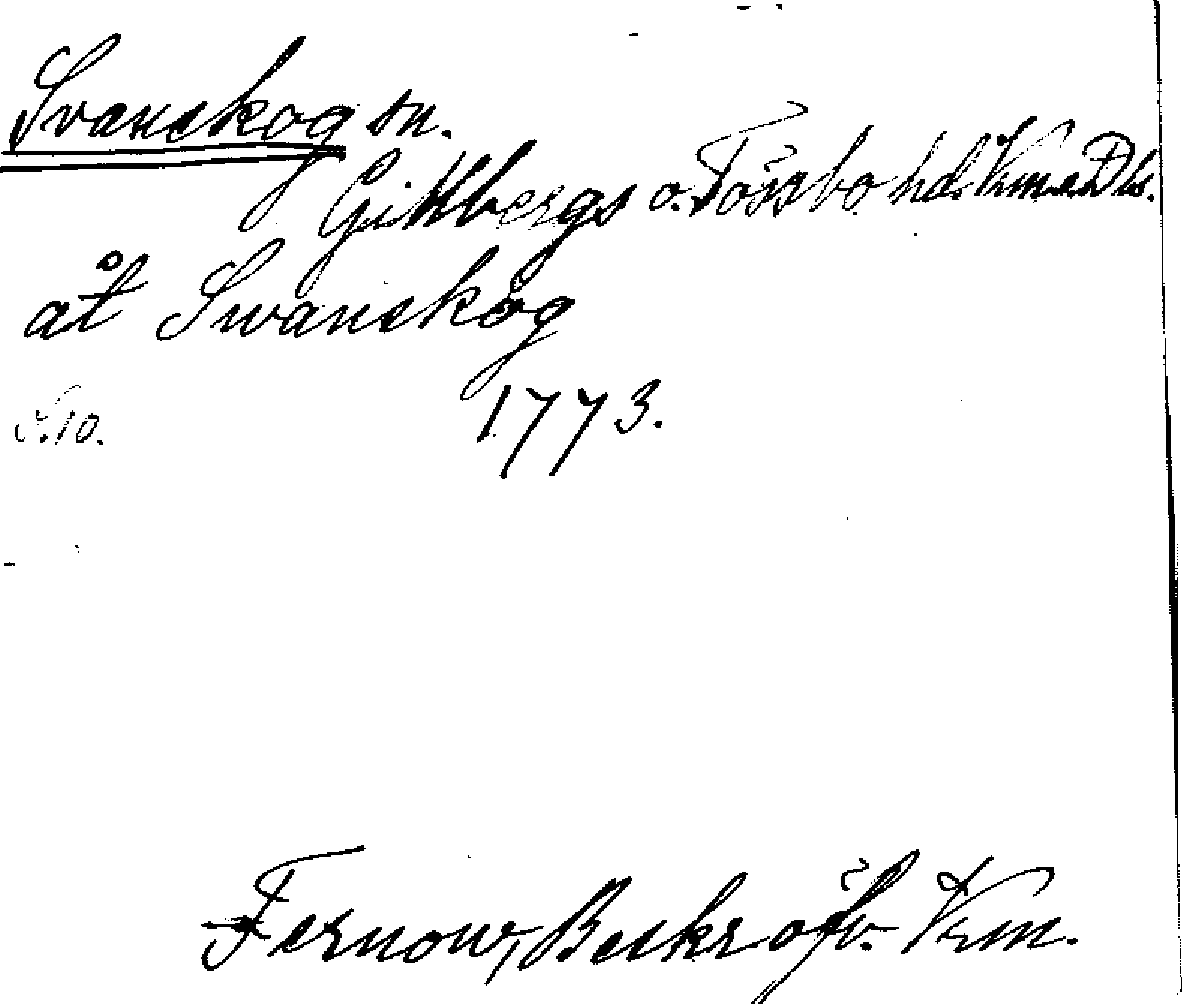 Svanskog sn.
Gillbergs o. Tössbo hd. Vrm o. Dls.
åt Swanskog
S. 10. 1773.
Fernow, Beskr öfv. Vrm.